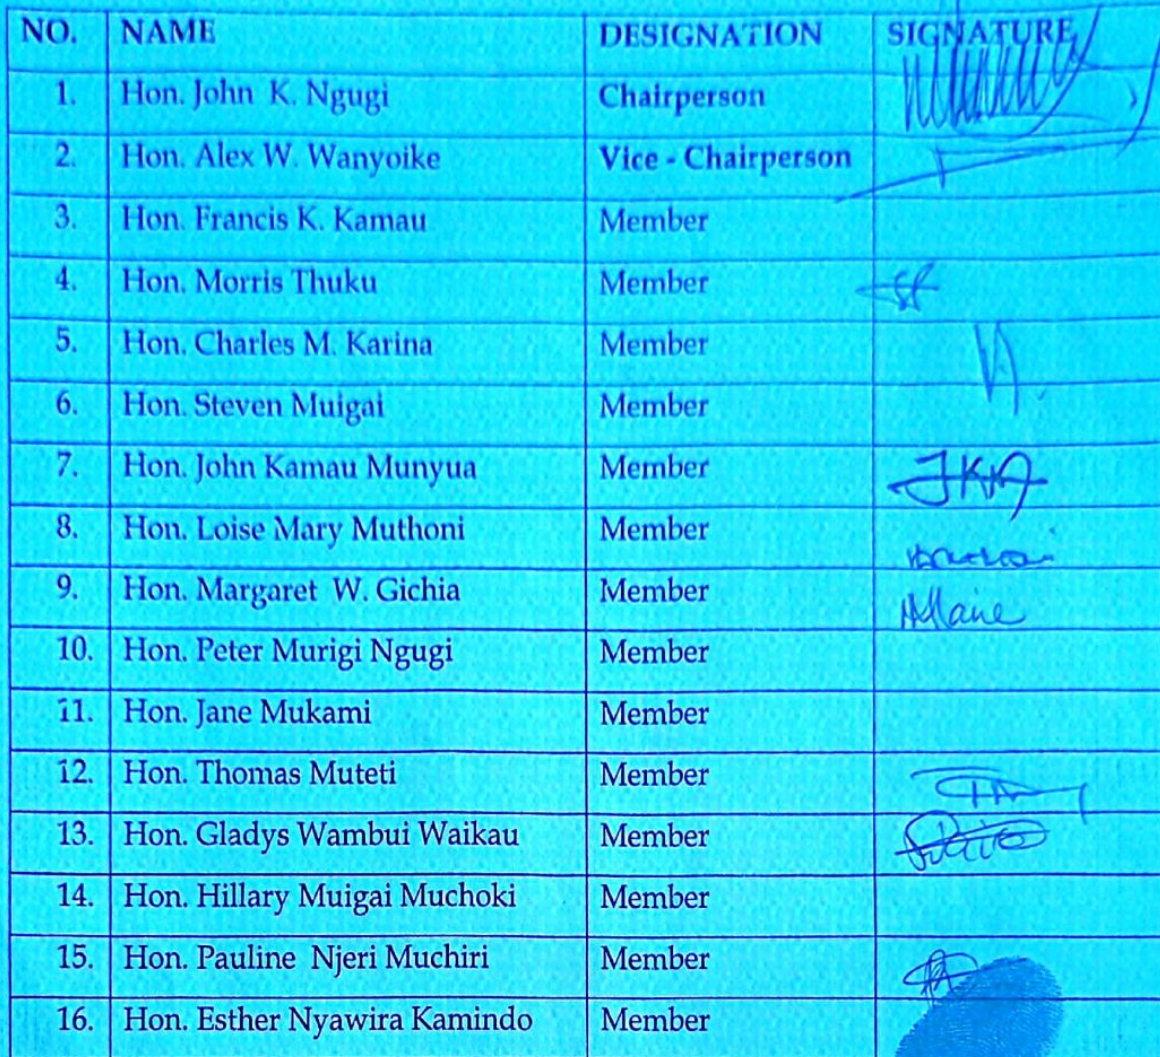 NO. NAME DESIGNATION SIGNATURE
1. Hon. John K. Ngugi Chairperson
2. Hon. Alex W. Wanyoike Vice - Chairperson
3. Hon. Francis K. Kamau Member
4. Hon. Morris Thuku Member
5. Hon. Charles M. Karina Member
6. Hon. Steven Muigai Member
7. Hon. John Kamau Munyua Member
8. Hon. Loise Mary Muthoni Member
9. Hon. Margaret W. Gichia Member
10. Hon. Peter Murigi Ngugi Member
11. Hon. Jane Mukami Member
12. Hon. Thomas Muteti Member
13. Hon. Gladys Wambui Waikau Member
14. Hon. Hillary Muigai Muchoki Member
15. Hon. Pauline Njeri Muchiri Member
16. Hon. Esther Nyawira Kamindo Member